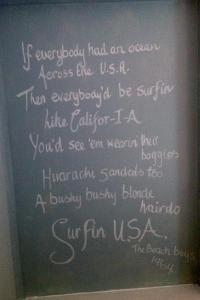 If everybody had an ocean
Across the U.S.A.
Then everybody'd be surfin
Like Califor-I-A
You'd see 'em wearin' their
baggies
Huarachi Sandals too
A bushy bushy blonde
hairdo
Surfin U.S.A.
The Beach boys
1964